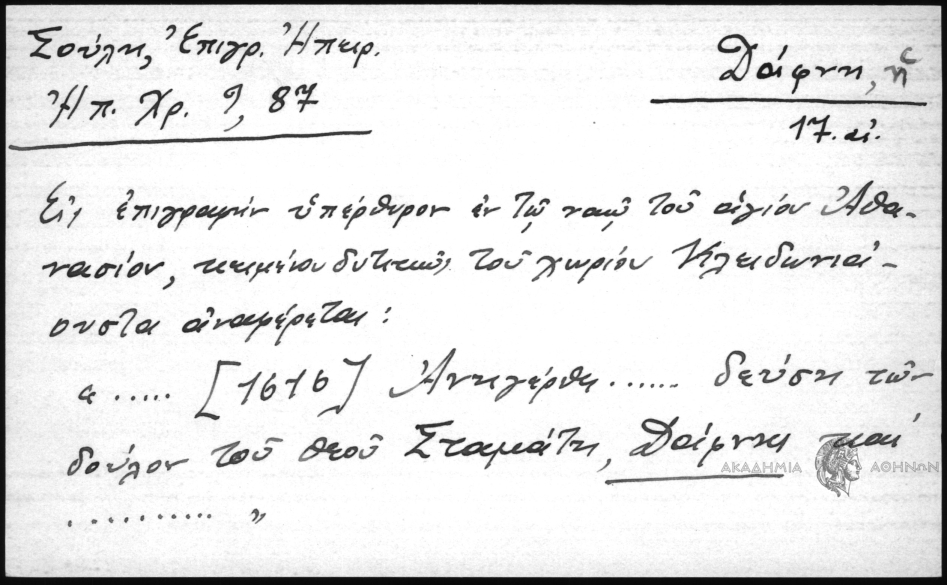 Σούλη, Ἐπιγρ. Ἠπειρ.
Ἠπ. Χρ. 9, 87
Δάφνη, ἡ
17. αἰ.
Εἰς ἐπιγραφὴν ὑπέρθυρον ἐν τῷ ναῷ τοῦ ἁγίου Ἀθα-
νασίου, κειμένου δυτικῶς τοῦ χωρίου Κλειδωνιά-
ουστα ἀναφέρεται:
α ..... [1616] Ἀνηγέρθη ...... δεύση τῶν
δούλον τοῦ θεοῦ Σταμάτη, Δάφνης καὶ
........... „
ΑΚΑΔΗΜΙΑ ΑΘΗΝΩΝ